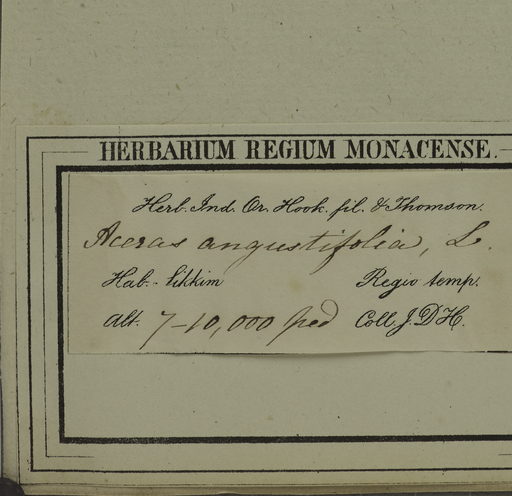 HERBARIUM REGIUM MONACENSE.
Herb. Ind. Or. Hook. fil. & Thomson.
Aceras angustifolia, L.
Hab.- Sikkim Regio temp.
Alt. 7-10,000 ped Coll. J. D H.